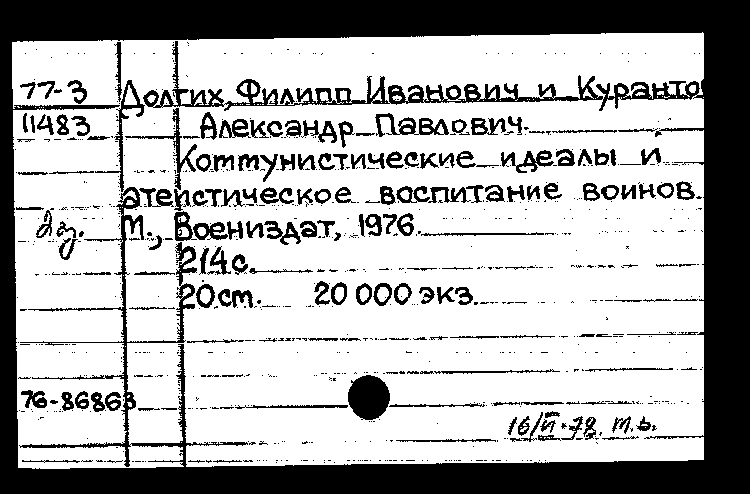 77-3 Долгих, Филипп Иванович и Куранто
11483 Александр Павлович.
Коммунистические идеалы и
атеистическое воспитание воинов.
М., Воениздат, 1976.
214с.
20см. 20 000 экз.
76-86863
16/II-78. М.Ь.